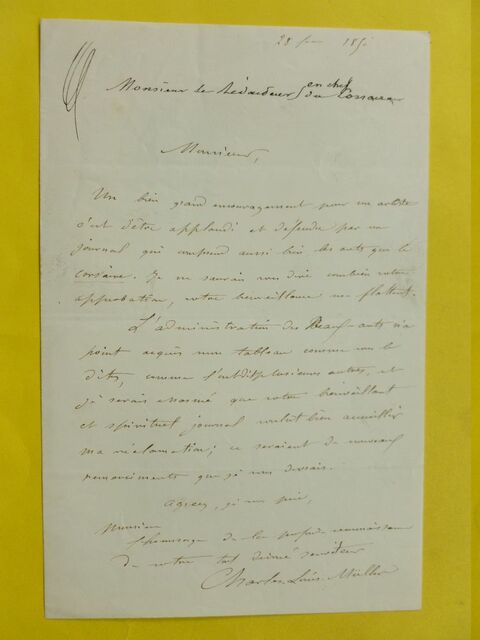 28 185
Monsieur le Rédacteur en chef
du Corsaire
Monsieur,
Un bien grand encouragement pour un artiste
c'est d'être applaudi et défendu par un
journal qui comprend aussi bien les arts que le
corsaire. Je ne saurais vous dire combien votre
approbation, votre bienveillance me flattent.
L'administration des Beaux-arts n'a
point acquis mon tableau comme vous le
dites, comme l'ont dit plusieurs autres, et
je serais charmé que votre bienveillant
et spirituel journal voulut bien accueillir
ma réclamation; ce seraient de nouveaux
remerciments que je vous devrais.
Agréez, je vous prie,
Monsieur
l'hommage de la profonde reconnaissance
de votre tout dévoué serviteur
Charles Louis Müller